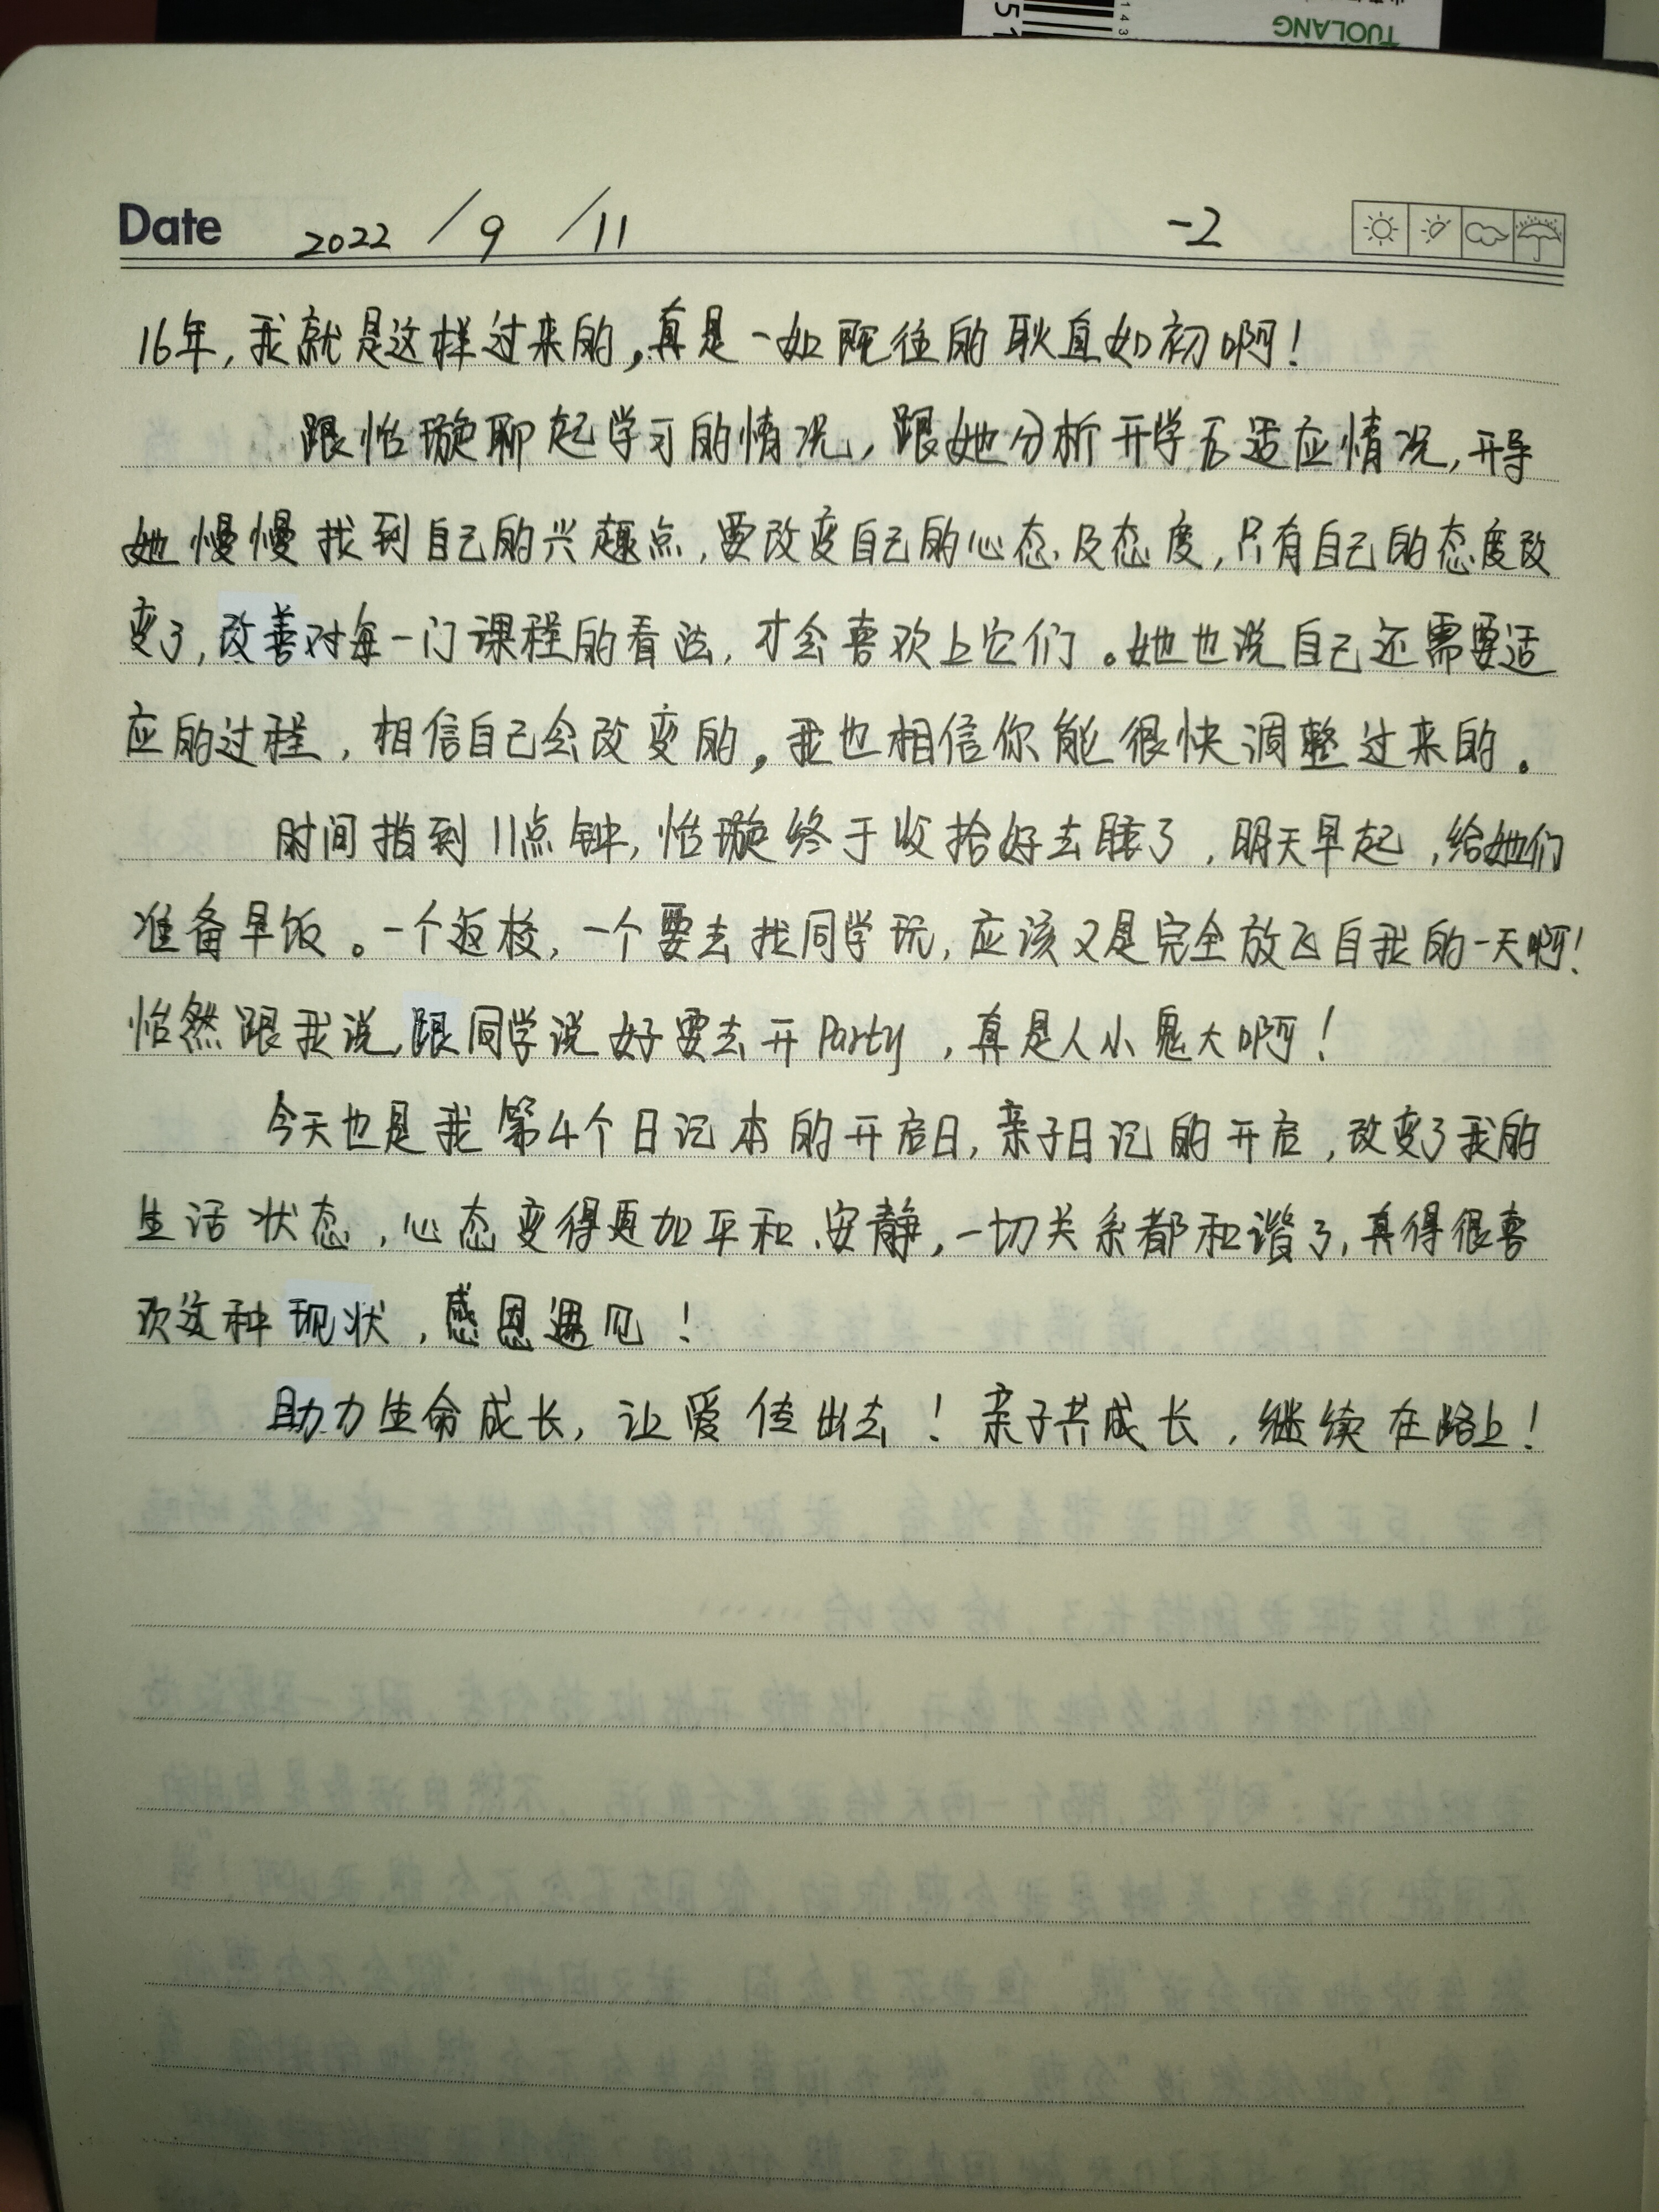 TUOLANG
Date 2022/9/11 -2
16年,我就是这样过来的,真是一如既往的耿直如初啊!
跟怡璇聊起学习的情况,跟她分析开学后适应情况,开导
她慢慢找到自己的兴趣点,要改变自己的心态及态度,只有自己的态度改
变了,改善对每一门课程的看法,才会喜欢上它们。她也说自己还需要适
应的过程,相信自己会改变的。我也相信你能很快调整过来的。
时间指到11点钟,怡璇终于收拾好去睡了,明天早起,给她们
准备早饭。一个返校,一个要去找同学玩,应该又是完全放飞自我的一天啊!
怡然跟我说,跟同学说好要去开Party,真是人小鬼大啊!
今天也是我第4个日记本的开启日,亲子日记的开启,改变了我的
生活状态,心态变得更加平和、安静,一切关系都和谐了,真得很喜
欢这种现状,感恩遇见!
助力生命成长,让爱传出去!亲子共成长,继续在路上!